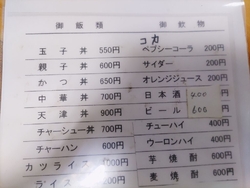 御飯類
玉子丼 550円
親子丼 600円
かつ丼 650円
中華丼 700円
天津丼 900円
チャーシュー丼 700円
チャーハン 600円
カツライス
ライス
御飲物
コカ
ペプシーコーラ 200円
サイダー 200円
オレンジジュース 200円
日本酒 400円
ビール 600
チューハイ 400円
ウーロンハイ 400円
芋焼酎 400円
麦焼酎 400円